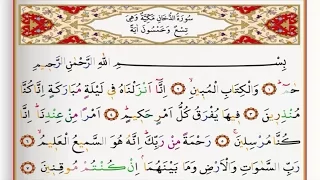 سُورَةُ الدُّخَانِ مَكِّيَّةٌ وَهِيَ
تِسْعٌ وَخَمْسُونَ اٰيَةً
بِسْمِ اللّٰهِ الرَّحْمٰنِ الرَّحِيمِ
حٰمٓ ﴿١﴾ وَالْكِتَابِ الْمُبِينِ ﴿٢﴾ اِنَّٓا اَنْزَلْنَاهُ فِي لَيْلَةٍ مُبَارَكَةٍ اِنَّا كُنَّا
مُنْذِرِينَ ﴿٣﴾ فِيهَا يُفْرَقُ كُلُّ اَمْرٍ حَكِيمٍ ﴿٤﴾ اَمْرًا مِنْ عِنْدِنَا اِنَّا
كُنَّا مُرْسِلِينَ ﴿٥﴾ رَحْمَةً مِنْ رَبِّكَ اِنَّهُ هُوَ السَّمِيعُ الْعَلِيمُ ﴿٦﴾
رَبِّ السَّمٰوَاتِ وَالْاَرْضِ وَمَا بَيْنَهُمَا اِنْ كُنْتُمْ مُوقِنِينَ ﴿٧﴾